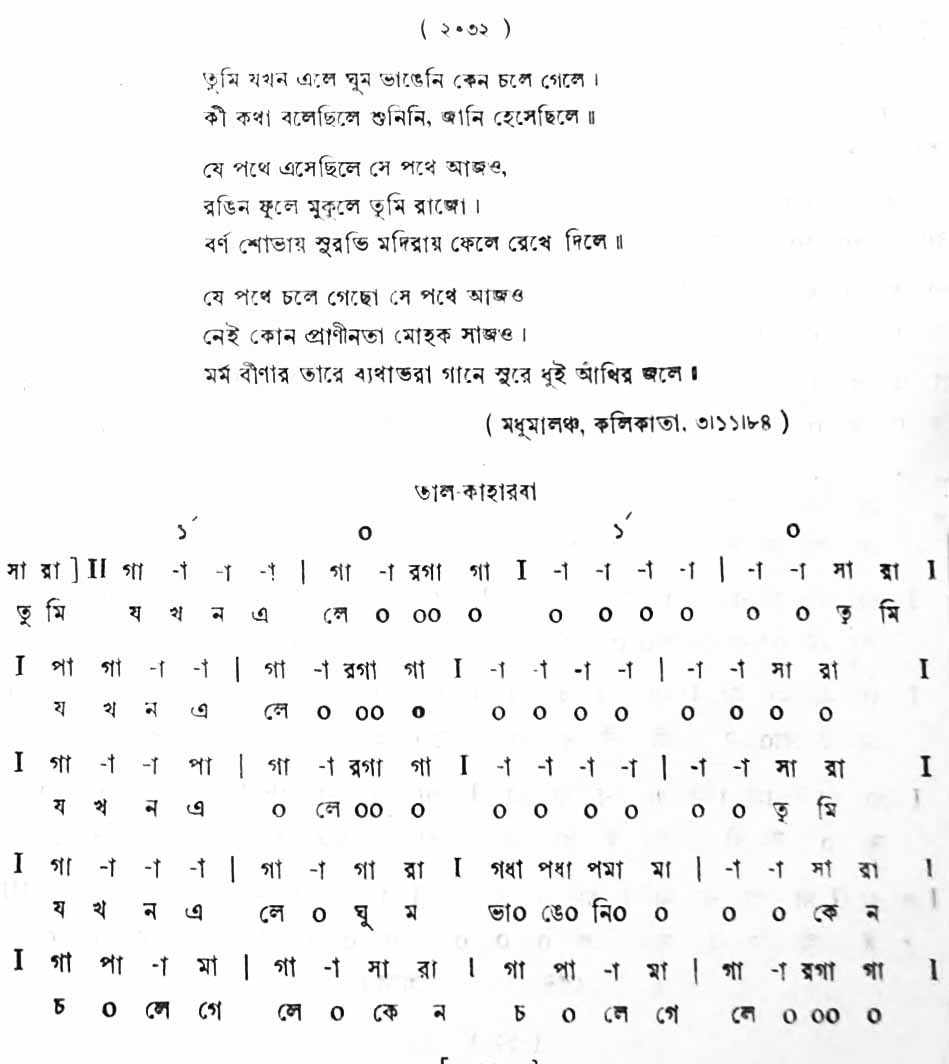 ( ২০৩২ )
তুমি যখন এলে ঘুম ভাঙেনি কেন চলে গেলে ।
কী কথা বলেছিলে শুনিনি, জানি হেসেছিলে ॥
যে পথে এসেছিলে সে পথে আজও,
রঙিন ফুলে মুকুলে তুমি রাজো ।
বর্ণ শোভায় সুরভি মদিরায় ফেলে রেখে দিলে ॥
যে পথে চলে গেছো সে পথে আজও
নেই কোন প্রাণীনতা মোহক সাজও ।
মর্ম বীণার তারে ব্যথাভরা গানে সুরে ধুই আঁখির জলে ॥
( মধুমালঞ্চ, কলিকাতা, ৩।১১।৮৪ )
তাল-কাহারবা
১´ o ১´ o
সা রা ] II গা -া -া -া | গা -া রগা গা I -া -া -া -া | -া -া সা রা I
তু মি য খ ন এ লে o oo o o o o o o o তু মি
I পা গা -া -া | গা -া রগা গা I -া -া -া -া | -া -া সা রা I
য খ ন এ লে o oo o o o o o o o o o
I গা -া -া পা | গা -া রগা গা I -া -া -া -া | -া -া সা রা I
য খ ন এ o লে oo o o o o o o o তু মি
I গা -া -া -া | গা -া গা রা I গধা পধা পমা মা | -া -া সা রা I
য খ ন এ লে o ঘু ম ভাo ঙেo নিo o o o কে ন
I গা পা -া মা | গা -া সা রা I গা পা -া মা | গা -া রগা গা I
চ o লে গে লে o কে ন চ o লে গে লে o oo o